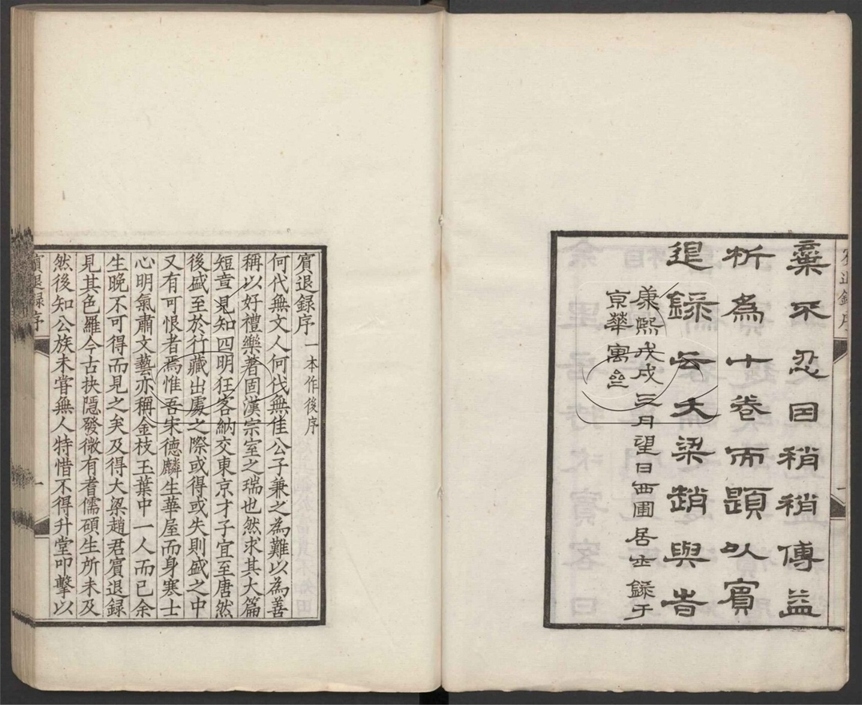 賓退錄序
棄不忍因稍稍傅益
析為十卷而題以賓
退錄云大梁趙與旹
康熙戊戌三月望日西圃居士錄于
京華寓
賓退錄序 一本作後序
何代無文人何代無佳公子兼之為難以為善
稱以好禮樂著固漢宗室之瑞也然求其大篇
短章見知四明狂客納交東京才子宜至唐然
後盛至於行藏出處之際或得或失則盛之中
又有可恨者焉惟吾宋德麟生華屋而身寒士
心明氣肅文藝亦稱金枝玉葉中一人而已余
生晚不可得而見之矣及得大梁趙君賓退錄
見其色羅今古抉隱發微有耆儒碩生所未及
然後知公族未嘗無人特惜不得升堂叩擊以
賓退錄序
一